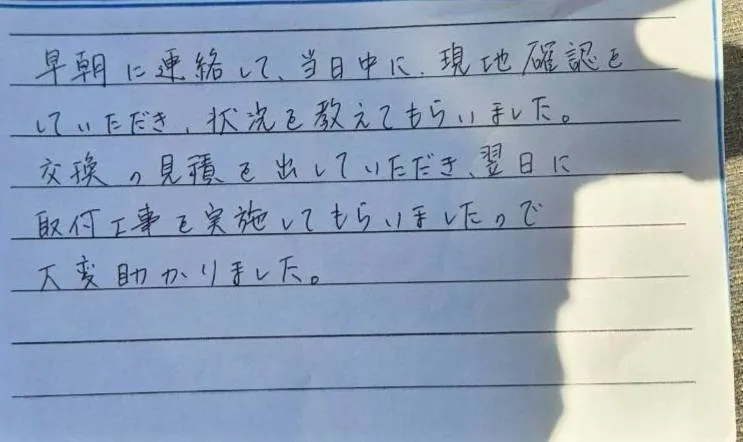 早朝に連絡して、当日中に、現地確認を
していただき、状況を教えてもらいました。
交換の見積を出していただき、翌日に
取付工事を実施してもらいましたので
大変助かりました。